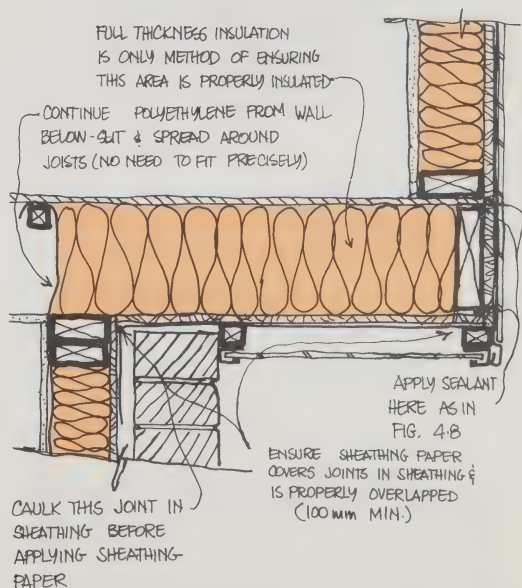 FULL THICKNESS INSULATION
IS ONLY METHOD OF ENSURING
THIS AREA IS PROPERLY INSULATED
CONTINUE POLYETHYLENE FROM WALL
BELOW-SLIT & SPREAD AROUND
JOISTS (NO NEED TO FIT PRECISELY)
APPLY SEALANT
HERE AS IN
FIG. 4.8
ENSURE SHEATHING PAPER
COVERS JOINTS IN SHEATHING &
IS PROPERLY OVERLAPPED
(100 mm MIN.)
CAULK THIS JOINT IN
SHEATHING BEFORE
APPLYING SHEATHING
PAPER